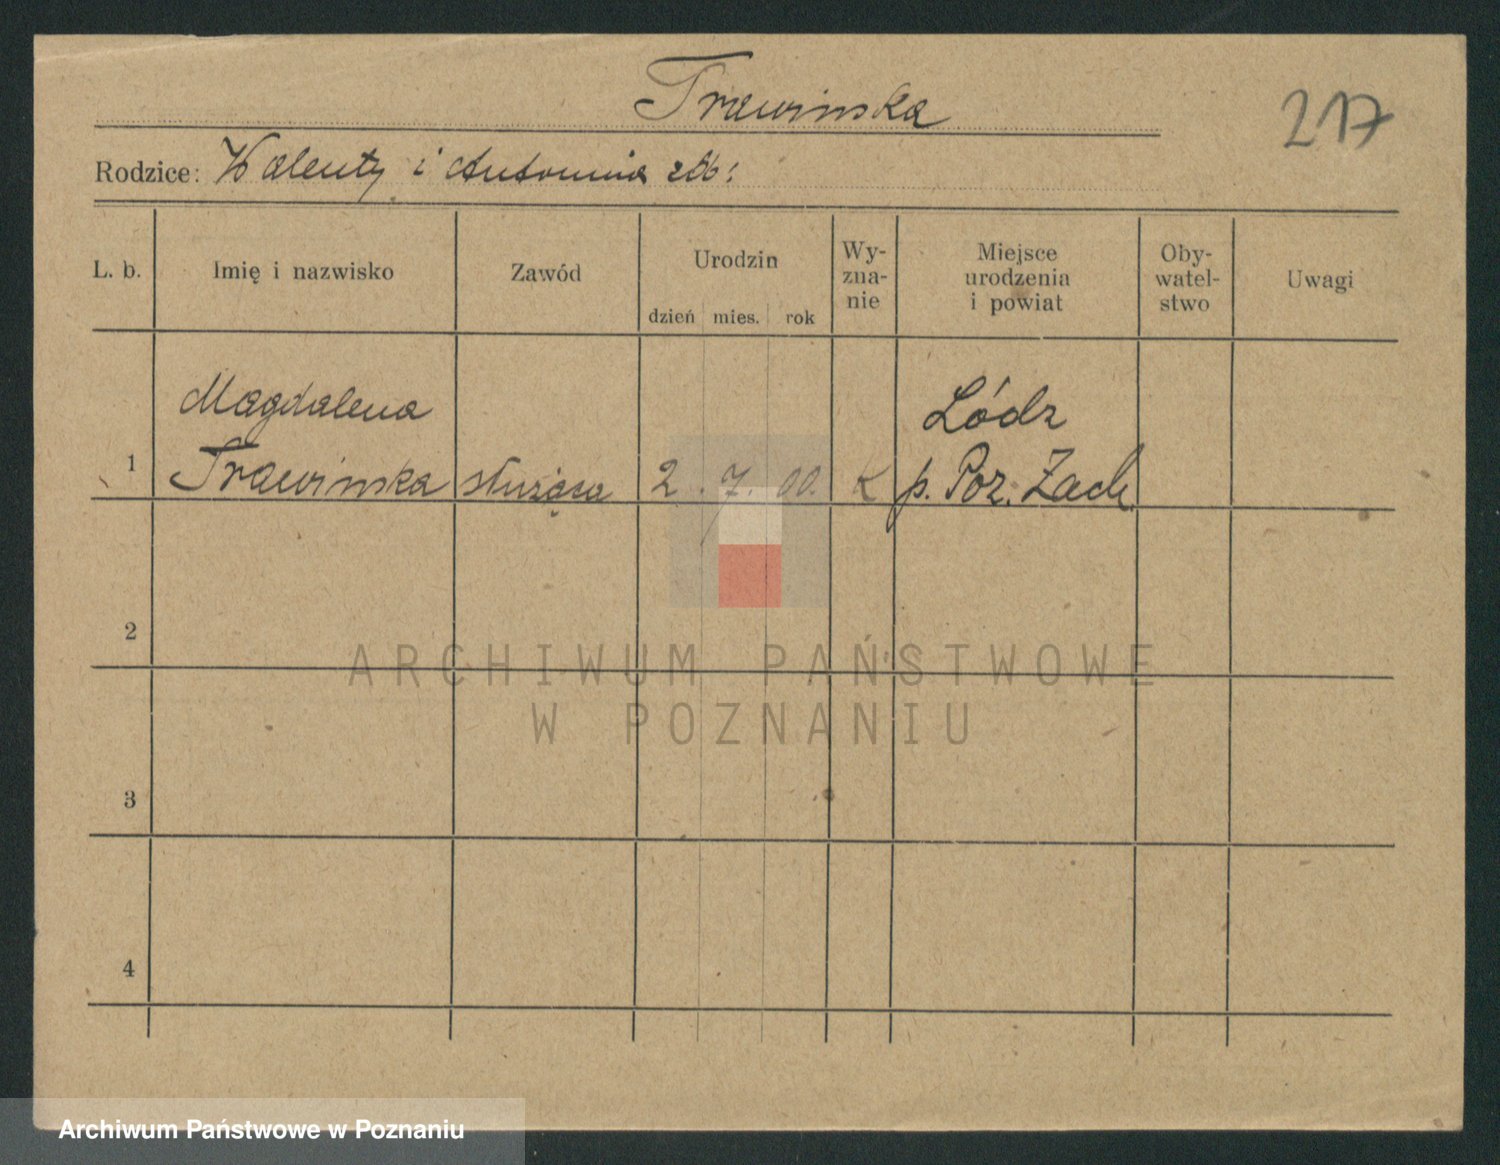 Trawinska
217
Rodzice: Walenty i Antonina
L. b.
Imię i nazwisko
Zawód
Urodzin
dzień mies. rok
Wy-
zna-
nie
Miejsce
urodzenia
i powiat
Oby-
watel-
stwo
Uwagi
1
Magdalena
Trawinska
służąca
2. 7. 00.
K
Lódz
p. Poz. Zach.
2
3
4
ARCHIWUM PAŃSTWOWE
W POZNANIU
Archiwum Państwowe w Poznaniu